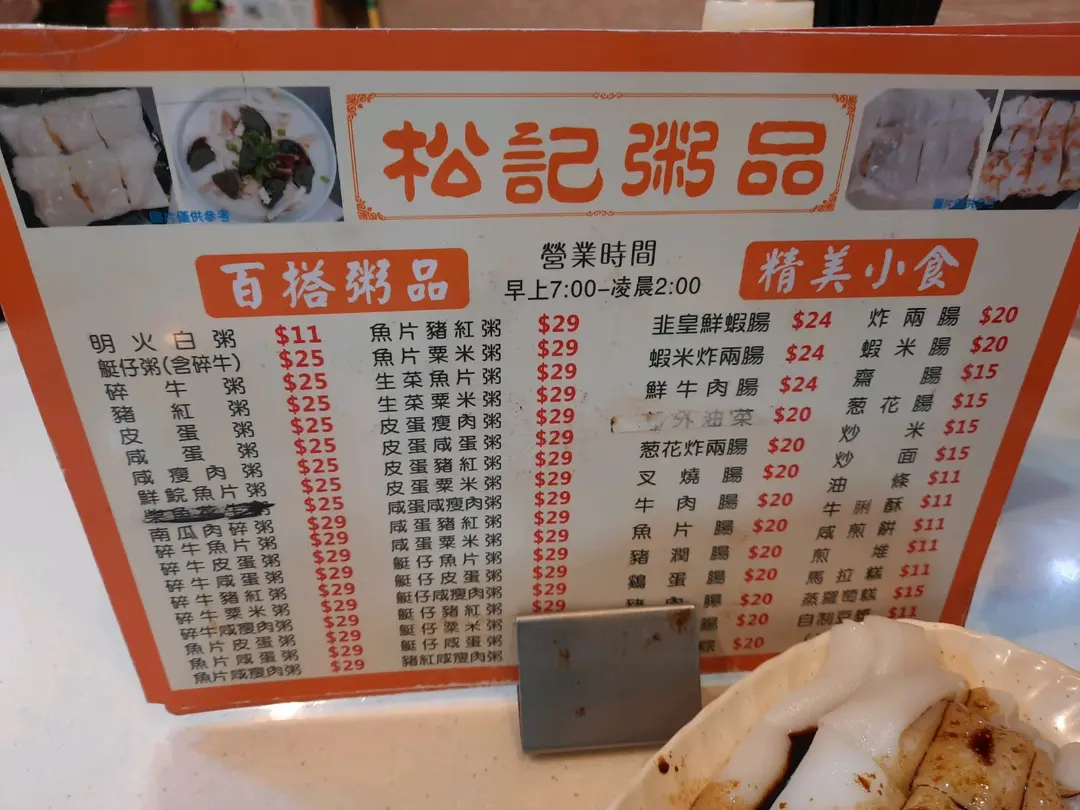 松記粥品
圖片僅供參考
圖片僅供參
百搭粥品
營業時間
早上7:00-凌晨2:00
精美小食
明火白粥 $11
艇仔粥(含碎牛) $25
碎牛粥 $25
豬紅粥 $25
皮蛋粥 $25
咸蛋粥 $25
咸瘦肉粥 $25
鮮鯇魚片粥 $25
$25
南瓜肉碎粥 $29
碎牛魚片粥 $29
碎牛皮蛋粥 $29
碎牛咸蛋粥 $29
碎牛豬紅粥 $29
碎牛粟米粥 $29
碎牛咸瘦肉粥 $29
魚片皮蛋粥 $29
魚片咸蛋粥 $29
魚片咸瘦肉粥 $29
魚片豬紅粥 $29
魚片粟米粥 $29
生菜魚片粥 $29
生菜粟米粥 $29
皮蛋瘦肉粥 $29
皮蛋咸蛋粥 $29
皮蛋豬紅粥 $29
皮蛋粟米粥 $29
咸蛋咸瘦肉粥 $29
咸蛋豬紅粥 $29
咸蛋粟米粥 $29
艇仔魚片粥 $29
艇仔皮蛋粥 $29
艇仔咸瘦肉粥 $29
艇仔豬紅粥
艇仔粟米粥
艇仔咸蛋粥
豬紅咸瘦肉粥
韭皇鮮蝦腸 $24
蝦米炸兩腸 $24
鮮牛肉腸 $24
外油菜 $20
葱花炸兩腸 $20
叉燒腸 $20
牛肉腸 $20
魚片腸 $20
豬潤腸 $20
鷄蛋腸 $20
豬肉腸 $20
腸 $20
粽 $20
炸兩腸 $20
蝦米腸 $20
齋腸 $15
葱花腸 $15
炒米 $15
炒面 $15
油條 $11
牛脷酥 $11
咸煎餅 $11
煎堆 $11
馬拉糕 $11
蒸蘿蔔糕 $15
自制豆漿 $11